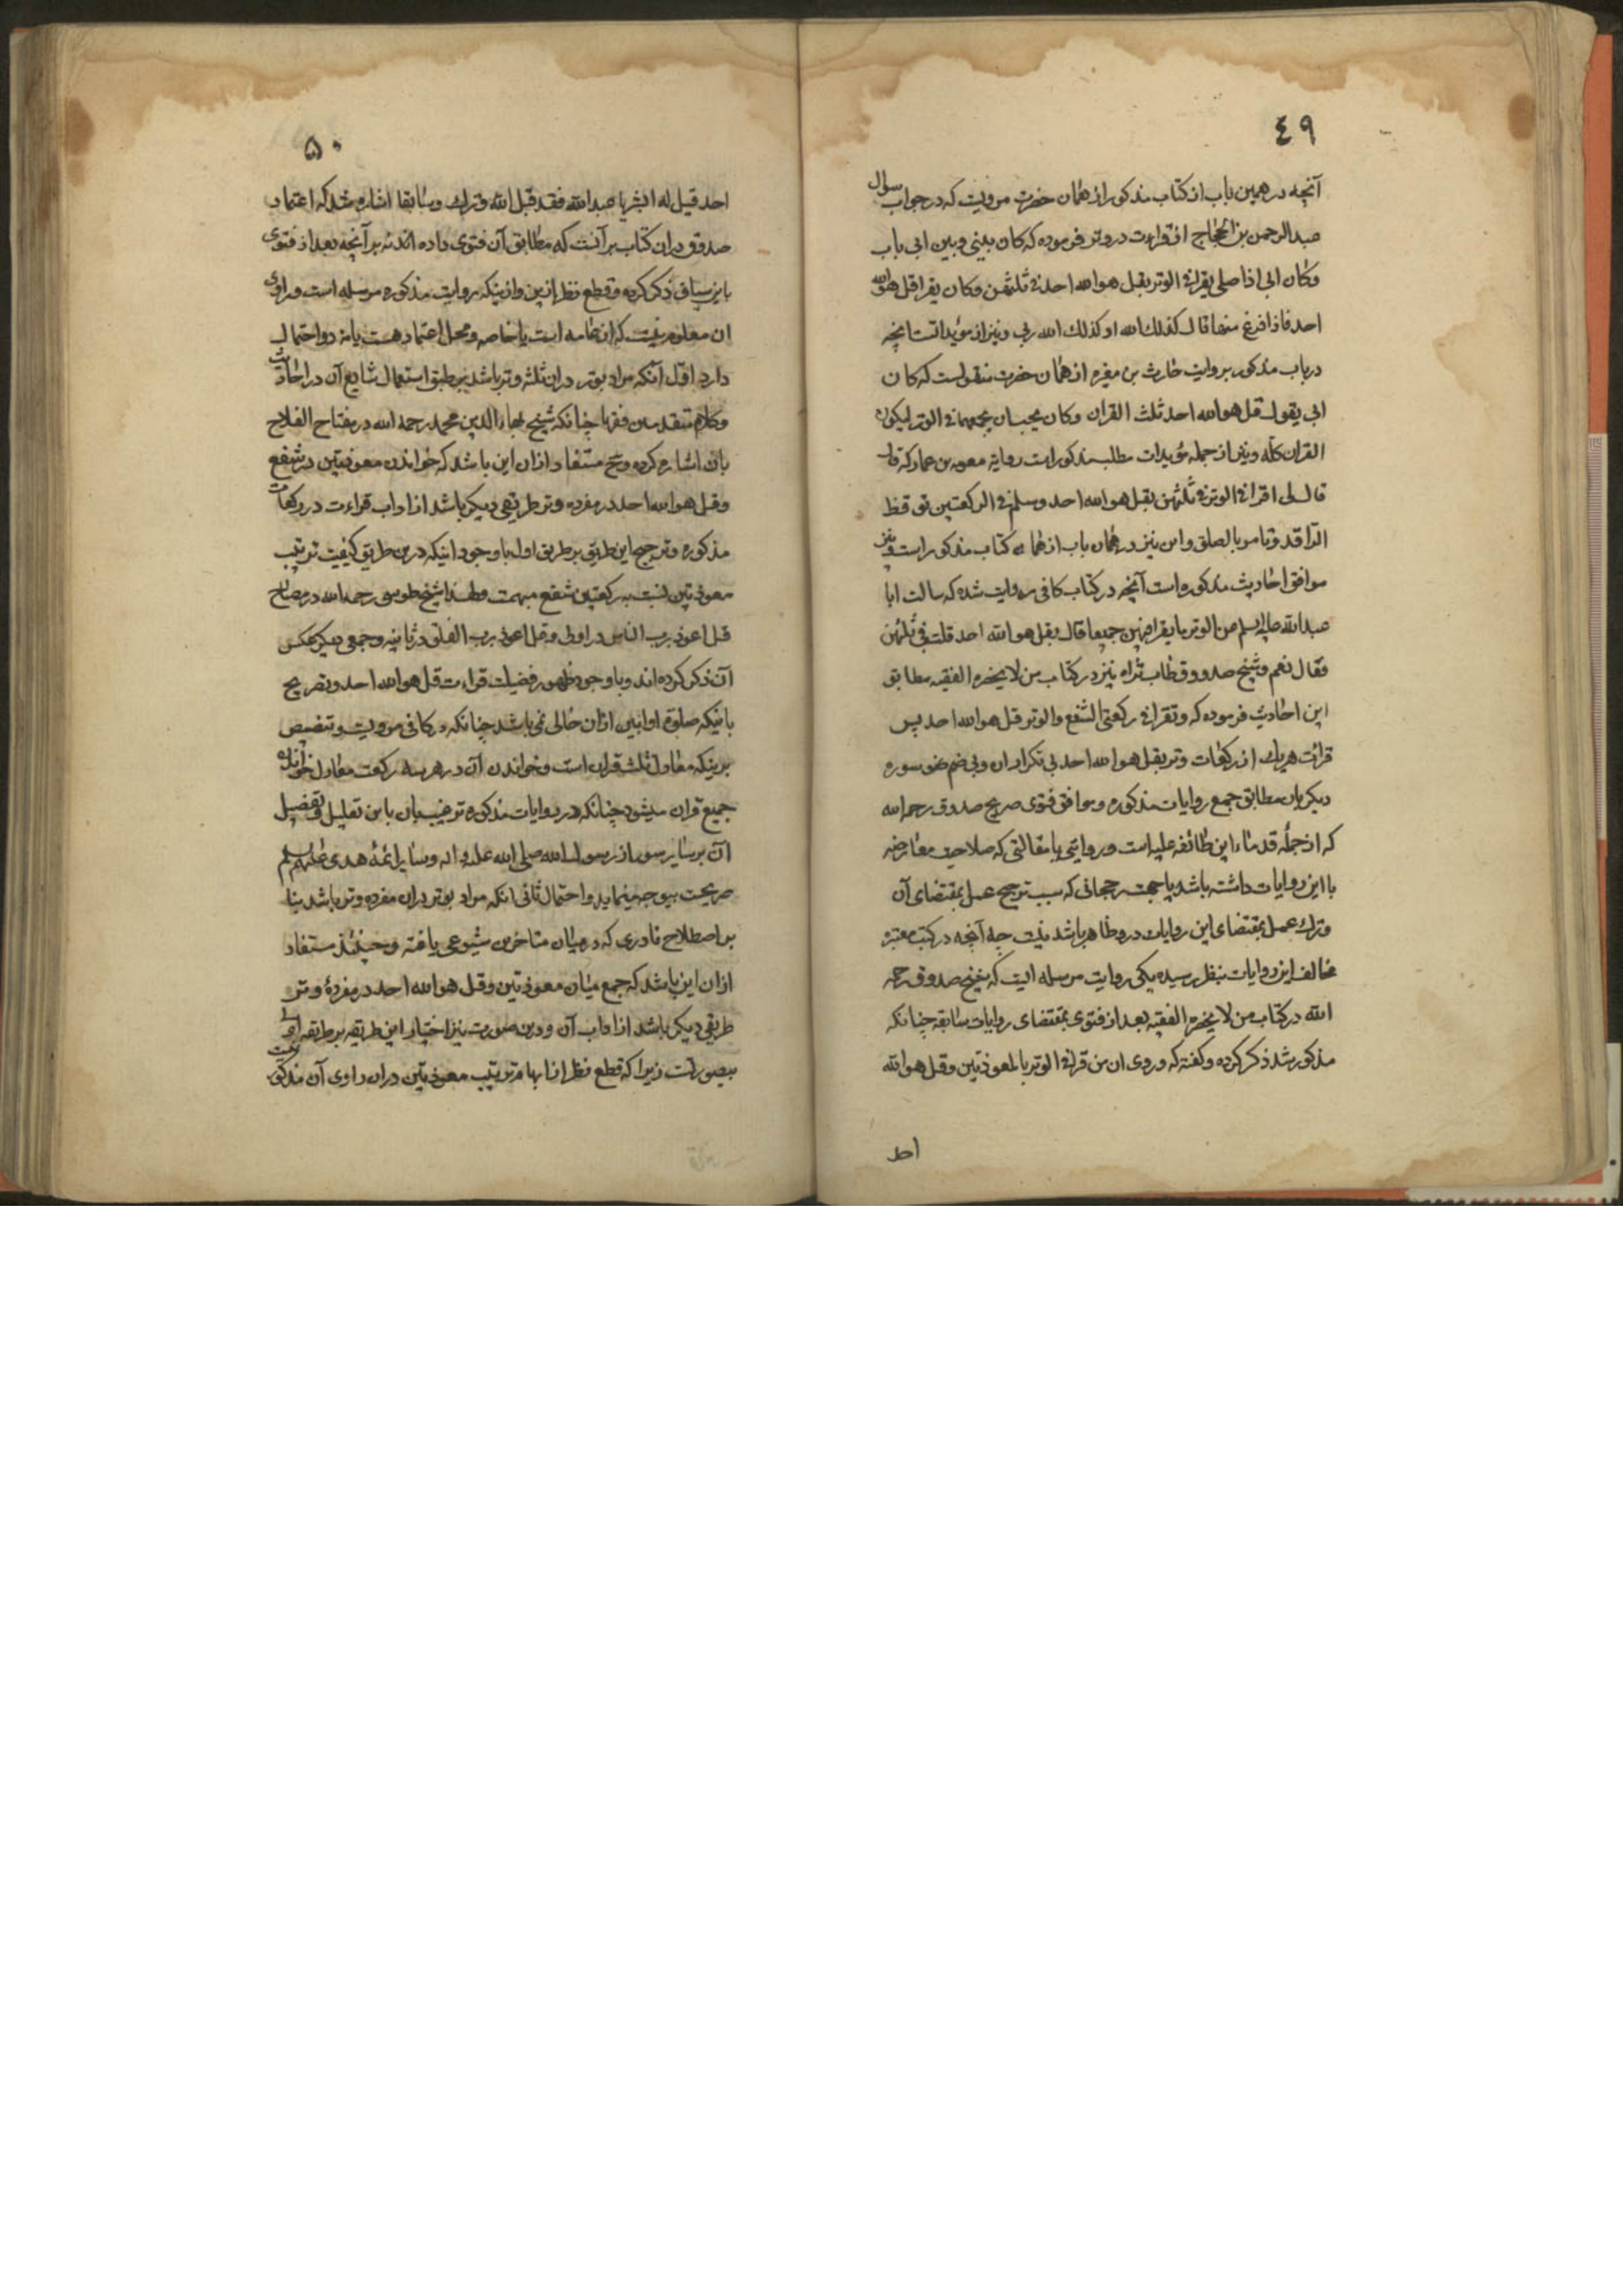 ٤٩
آنچه در همین باب از کتاب مذکور از همان حضرت مرویست که در جواب سوال
عبدالرحمن بن الحجاج از قراءت در وتر فرموده که کان بینی و بین ابی باب
وکان ابی اذا صلی یقرا فی الوتر بقل هو الله احد فی ثلثهن وکان یقرا قل هو الله
احد فاذا فرغ منها قال کذلک الله او کذلک الله ربی و نیز از مؤیداتست انچه
در باب مذکور بروایت حارث بن مغیره از همان حضرت منقولست که کان
ابی یقول قل هو الله احد ثلث القران وکان یحب ان یجمعها فی الوتر لیکون
القران کله و نیز از جمله مؤیدات مطلب مذکور است روایة معویه بن عمار که قال
قال لی اقرا فی الوتر فی ثلثهن بقل هو الله احد وسلم فی الرکعتین توقظ
الراقد وتامر بالصلوة و این نیز در همان باب از همان کتاب مذکور است و نیز
موافق احادیث مذکوره است آنچه در کتاب کافی روایت شده که سالت ابا
عبدالله علیه السلم عن الوتر ما یقرا فیهن جمیعا قال بقل هو الله احد قلت فی ثلثهن
فقال نعم و شیخ صدوق طاب ثراه نیز در کتاب من لا یحضره الفقیه مطابق
این احادیث فرموده که وتقرا فی رکعتی الشفع والوتر قل هو الله احد پس
قرائت هر یک از رکعات وتر بقل هو الله احد بی تکرار ان و بی ضم سوره
دیگر بان مطابق جمع روایات مذکوره و موافق فتوی صریح صدوق رحمه الله
که از جمله قدماء این طائفه علیه است و روایتی یا مقالتی که صلاحیت معارضه
با این روایات داشته باشد یا جهت رجحانی که سبب ترجیح عمل بمقتضای آن
وترک عمل بمقتضای این روایات در و ظاهر باشد نیست چه آنچه در کتب معتبره
مخالف این روایات بنظر رسیده یکی روایت مرسله ایست که شیخ صدوق رحمه
الله در کتاب من لا یحضره الفقیه بعد از فتوی بمقتضای روایات سابقه چنانکه
مذکور شد ذکر کرده و گفته که وروی ان من قرا فی الوتر بالمعوذتین وقل هو الله
احد
۵۰
احد قیل له ابشر یا عبدالله فقد قبل الله وترک و سابقا اشاره شد که اعتماد
صدوق در ان کتاب بر آنست که مطابق آن فتوی داده اند نه بر آنچه بعد از فتوی
باین سیاق ذکر کرده و قطع نظر ازین و ازینکه روایت مذکوره مرسله است و راوی
ان معلوم نیست که از عامه است یا خاصه و محل اعتماد هست یا نه دو احتمال
دارد اول آنکه مراد بوتر در ان ثلثه وتر باشد بر طبق استعمال شایع آن در احادیث
وکلام متقدمین فقها چنانکه شیخ بهاء الدین محمد رحمه الله در مفتاح الفلاح
بان اشاره کرده و ح مستفاد از ان این باشد که خواندن معوذتین در شفع
وقل هو الله احد در مفرده وتر طریقی دیگر باشد از اداب قراءت در رکعات
مذکوره و ترجیح این طریق بر طریق اول با وجود اینکه درین طریق کیفیت ترتیب
معوذتین نسبت به رکعتین شفع مبهمست ولهذا شیخ طوسی رحمه الله در مصباح
قل اعوذ برب الناس در اولی و قل اعوذ برب الفلق در ثانیه و جمعی دیگر عکس
آن ذکر کرده اند و با وجود ظهور فضیلت قراءت قل هو الله احد و تصریح
باینکه صلوة اوابین ازان خالی نمی باشد چنانکه در کافی مرویست و تنصیص
برینکه معادل ثلث قران است و خواندن آن در هر سه رکعت معادل خواندن
جمیع قران میشود چنانکه در روایات مذکوره ترغیب بان باین تعلیل و تفضیل
آن بر سایر سور از رسول الله صلی الله علیه واله و سایر ائمه هدی علیهم السلم
صریحست بیوجه مینماید و احتمال ثانی انکه مراد بوتر دران مفرده وتر باشد بنا
بر اصطلاح نادری که در میان متاخرین شیوعی یافته و حینئذ مستفاد
از ان این باشد که جمع میان معوذتین وقل هو الله احد در مفردهٔ وتر
طریقی دیگر باشد از اداب آن و درین صورت نیز اختیار این طریقه بر طریقه اولی
بیصورتست زیرا که قطع نظر از ابهام ترتیب معوذتین دران راوی آن مذکور نیست